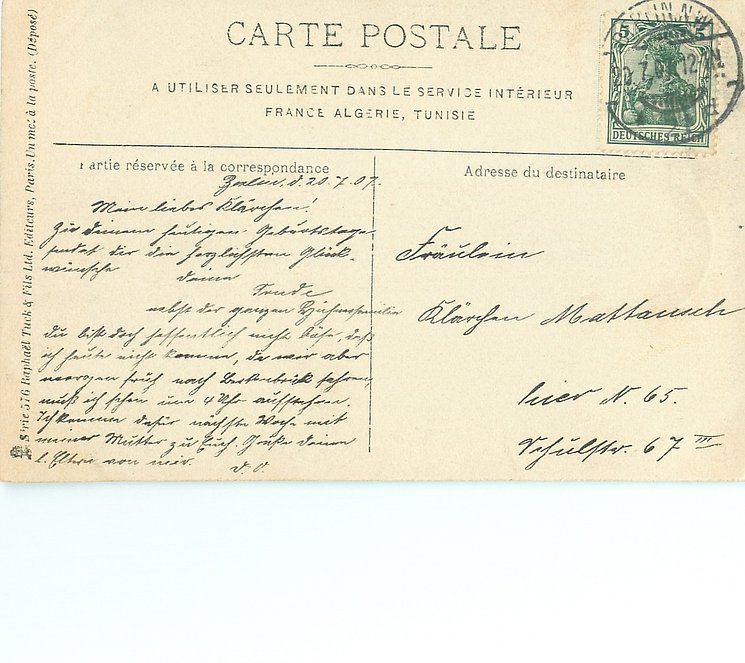 CARTE POSTALE
A UTILISER SEULEMENT DANS LE SERVICE INTÉRIEUR
FRANCE ALGERIE, TUNISIE
Partie réservée à la correspondance
Berlin, d. 20.7.07.
Mein liebes Klärchen!
Zu deinem heutigen Geburtstage
sendet dir die herzlichsten Glück-
wünsche deine
Trude
nebst der ganzen
Du bist doch hoffentlich nicht böse, daß
ich heute nicht komme, da wir aber
morgen früh nach fahren,
muß ich schon um 4 Uhr aufstehen.
Ich komme dafür nächste Woche mit
meiner Mutter zu Euch. Grüße deine
l. Eltern von mir.
D. O.
Adresse du destinataire
Fräulein
Klärchen Mattausch
hier N. 65.
Schulstr. 67 III
5
BERLIN N.W.
20.7.07 12-1N
DEUTSCHES REICH
Série 576 Raphaël Tuck & Fils Ltd. Editeurs, Paris. Un mec à la poste. (Déposé)